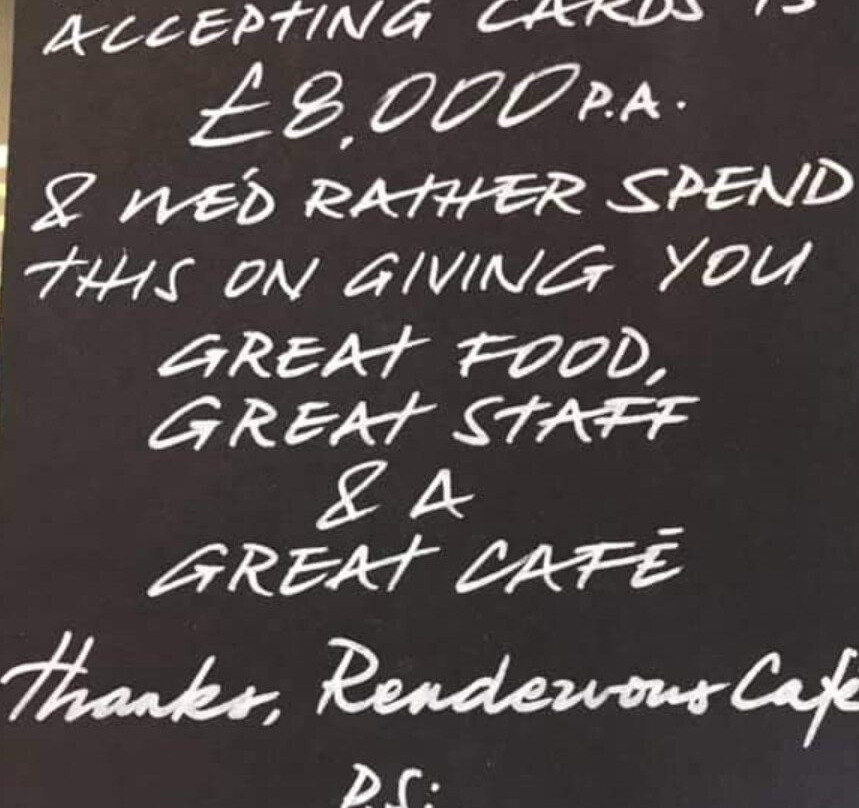 ACCEPTING CARDS IS
£8,000 P.A.
& WE'D RATHER SPEND
THIS ON GIVING YOU
GREAT FOOD,
GREAT STAFF
& A
GREAT CAFÉ
Thanks, Rendezvous Cafe
P.S: